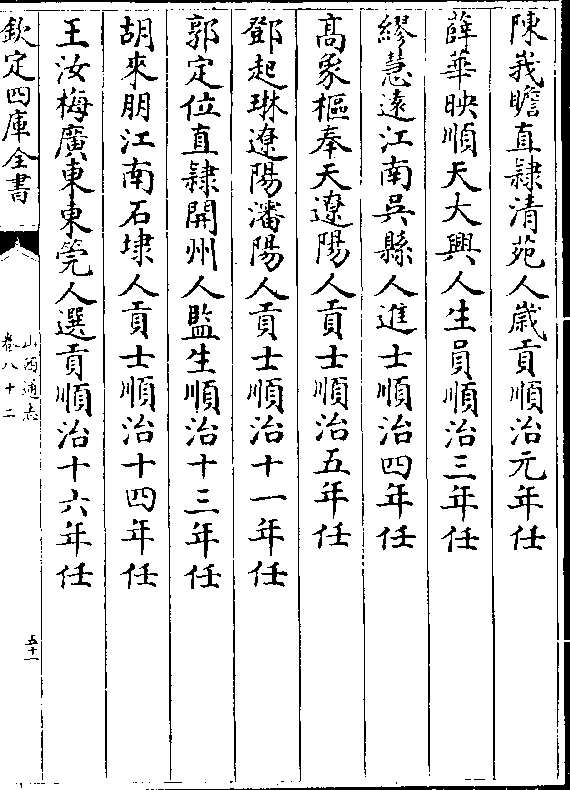 陳莪瞻直隸清苑人歲貢順治元年任
薛華映順天大興人生員順治三年任
繆慧遠江南吳縣人進士順治四年任
高象樞奉天遼陽人貢士順治五年任
鄧起琳遼陽瀋陽人貢士順治十一年任
郭定位直隸開州人監生順治十三年任
胡來朋江南石埭人貢士順治十四年任
王汝梅廣東東筦人選貢順治十六年任
欽定四庫全書
山西通志
卷八十二
五十一